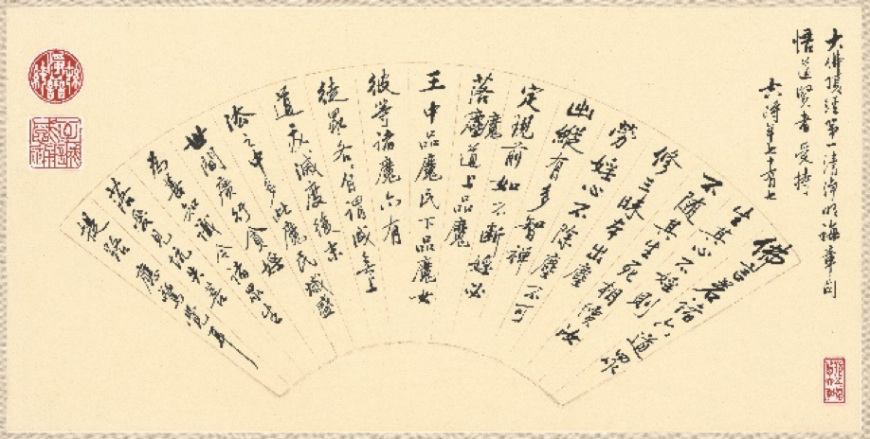 大佛頂經第一清淨明誨章句
悟道賢者受持
年七十有七
佛言若諸六道眾
生其心不婬則
不隨其生死相續汝
修三昧本出塵
勞婬心不除塵不可
出縱有多智禪
定現前如不斷婬必
落魔道上品魔
王中品魔民下品魔女
彼等諸魔亦有
徒眾各各自謂成無上
道我滅度後末
法之中多此魔民熾盛
世間廣行貪婬
為善知識令諸眾生
落愛見坑失菩
提路應驚覺耳